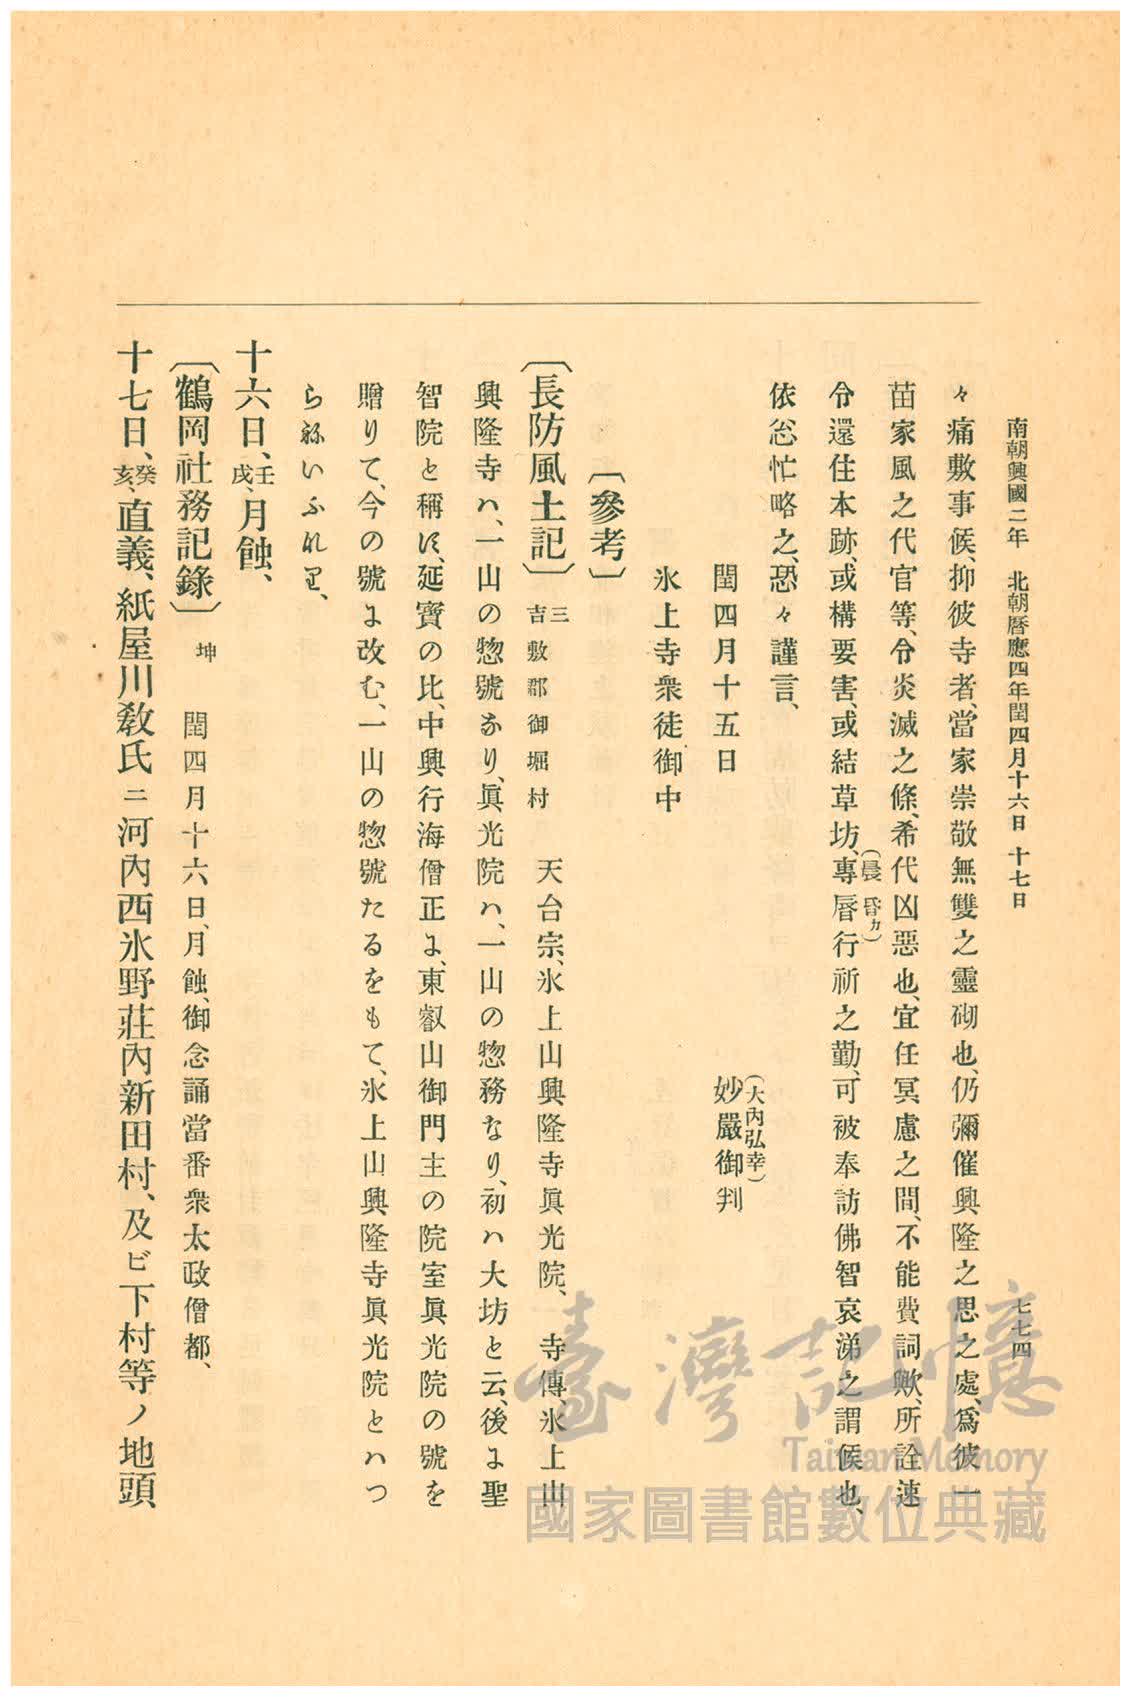 南朝興國二年　北朝曆應四年閏四月十六日　十七日　七七四
々痛敷事候、抑彼寺者、當家崇敬無雙之靈砌也、仍彌催興隆之思之處、爲彼一
苗家風之代官等、令炎滅之條、希代凶惡也、宜任冥慮之間、不能費詞歟、所詮速
令還住本跡、或構要害、或結草坊、專
(晨昏カ)
唇行祈之勤、可被奉訪佛智哀涕之謂候也、
依忩忙略之、恐々謹言、
閏四月十五日　妙嚴御判
(大內弘幸)
氷上寺衆徒御中
〔參考〕
〔長防風土記〕三吉敷郡御堀村　天台宗、氷上山興隆寺眞光院、　寺傳、氷上山
興隆寺ハ、一山の惣號あり、眞光院ハ、一山の惣務なり、初ハ大坊と云、後よ聖
智院と稱は、延寶の比、中興行海僧正よ、東叡山御門主の院室眞光院の號を
贈りて、今の號よ改む、一山の惣號たるをもて、氷上山興隆寺眞光院とハつ
らねいふれり、
十六日、壬戌、月蝕、
〔鶴岡社務記錄〕坤　閏四月十六日、月蝕、御念誦當番衆太政僧都、
十七日、癸亥、直義、紙屋川敎氏ニ河內西氷野莊內新田村、及ビ下村等ノ地頭
臺灣記憶
Taiwan Memory
國家圖書館數位典藏